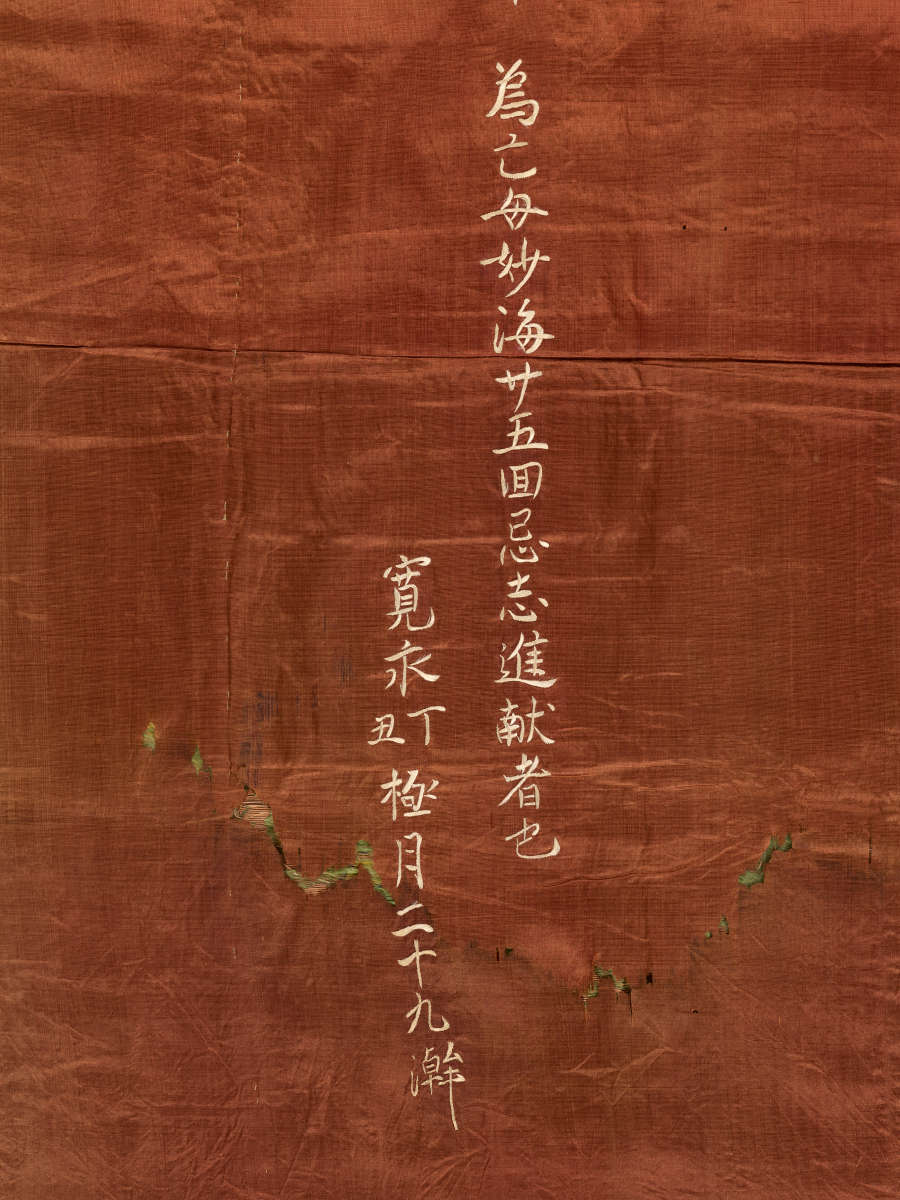 為亡母妙海廿五回忌志進献者也
寛永丁丑極月二十九